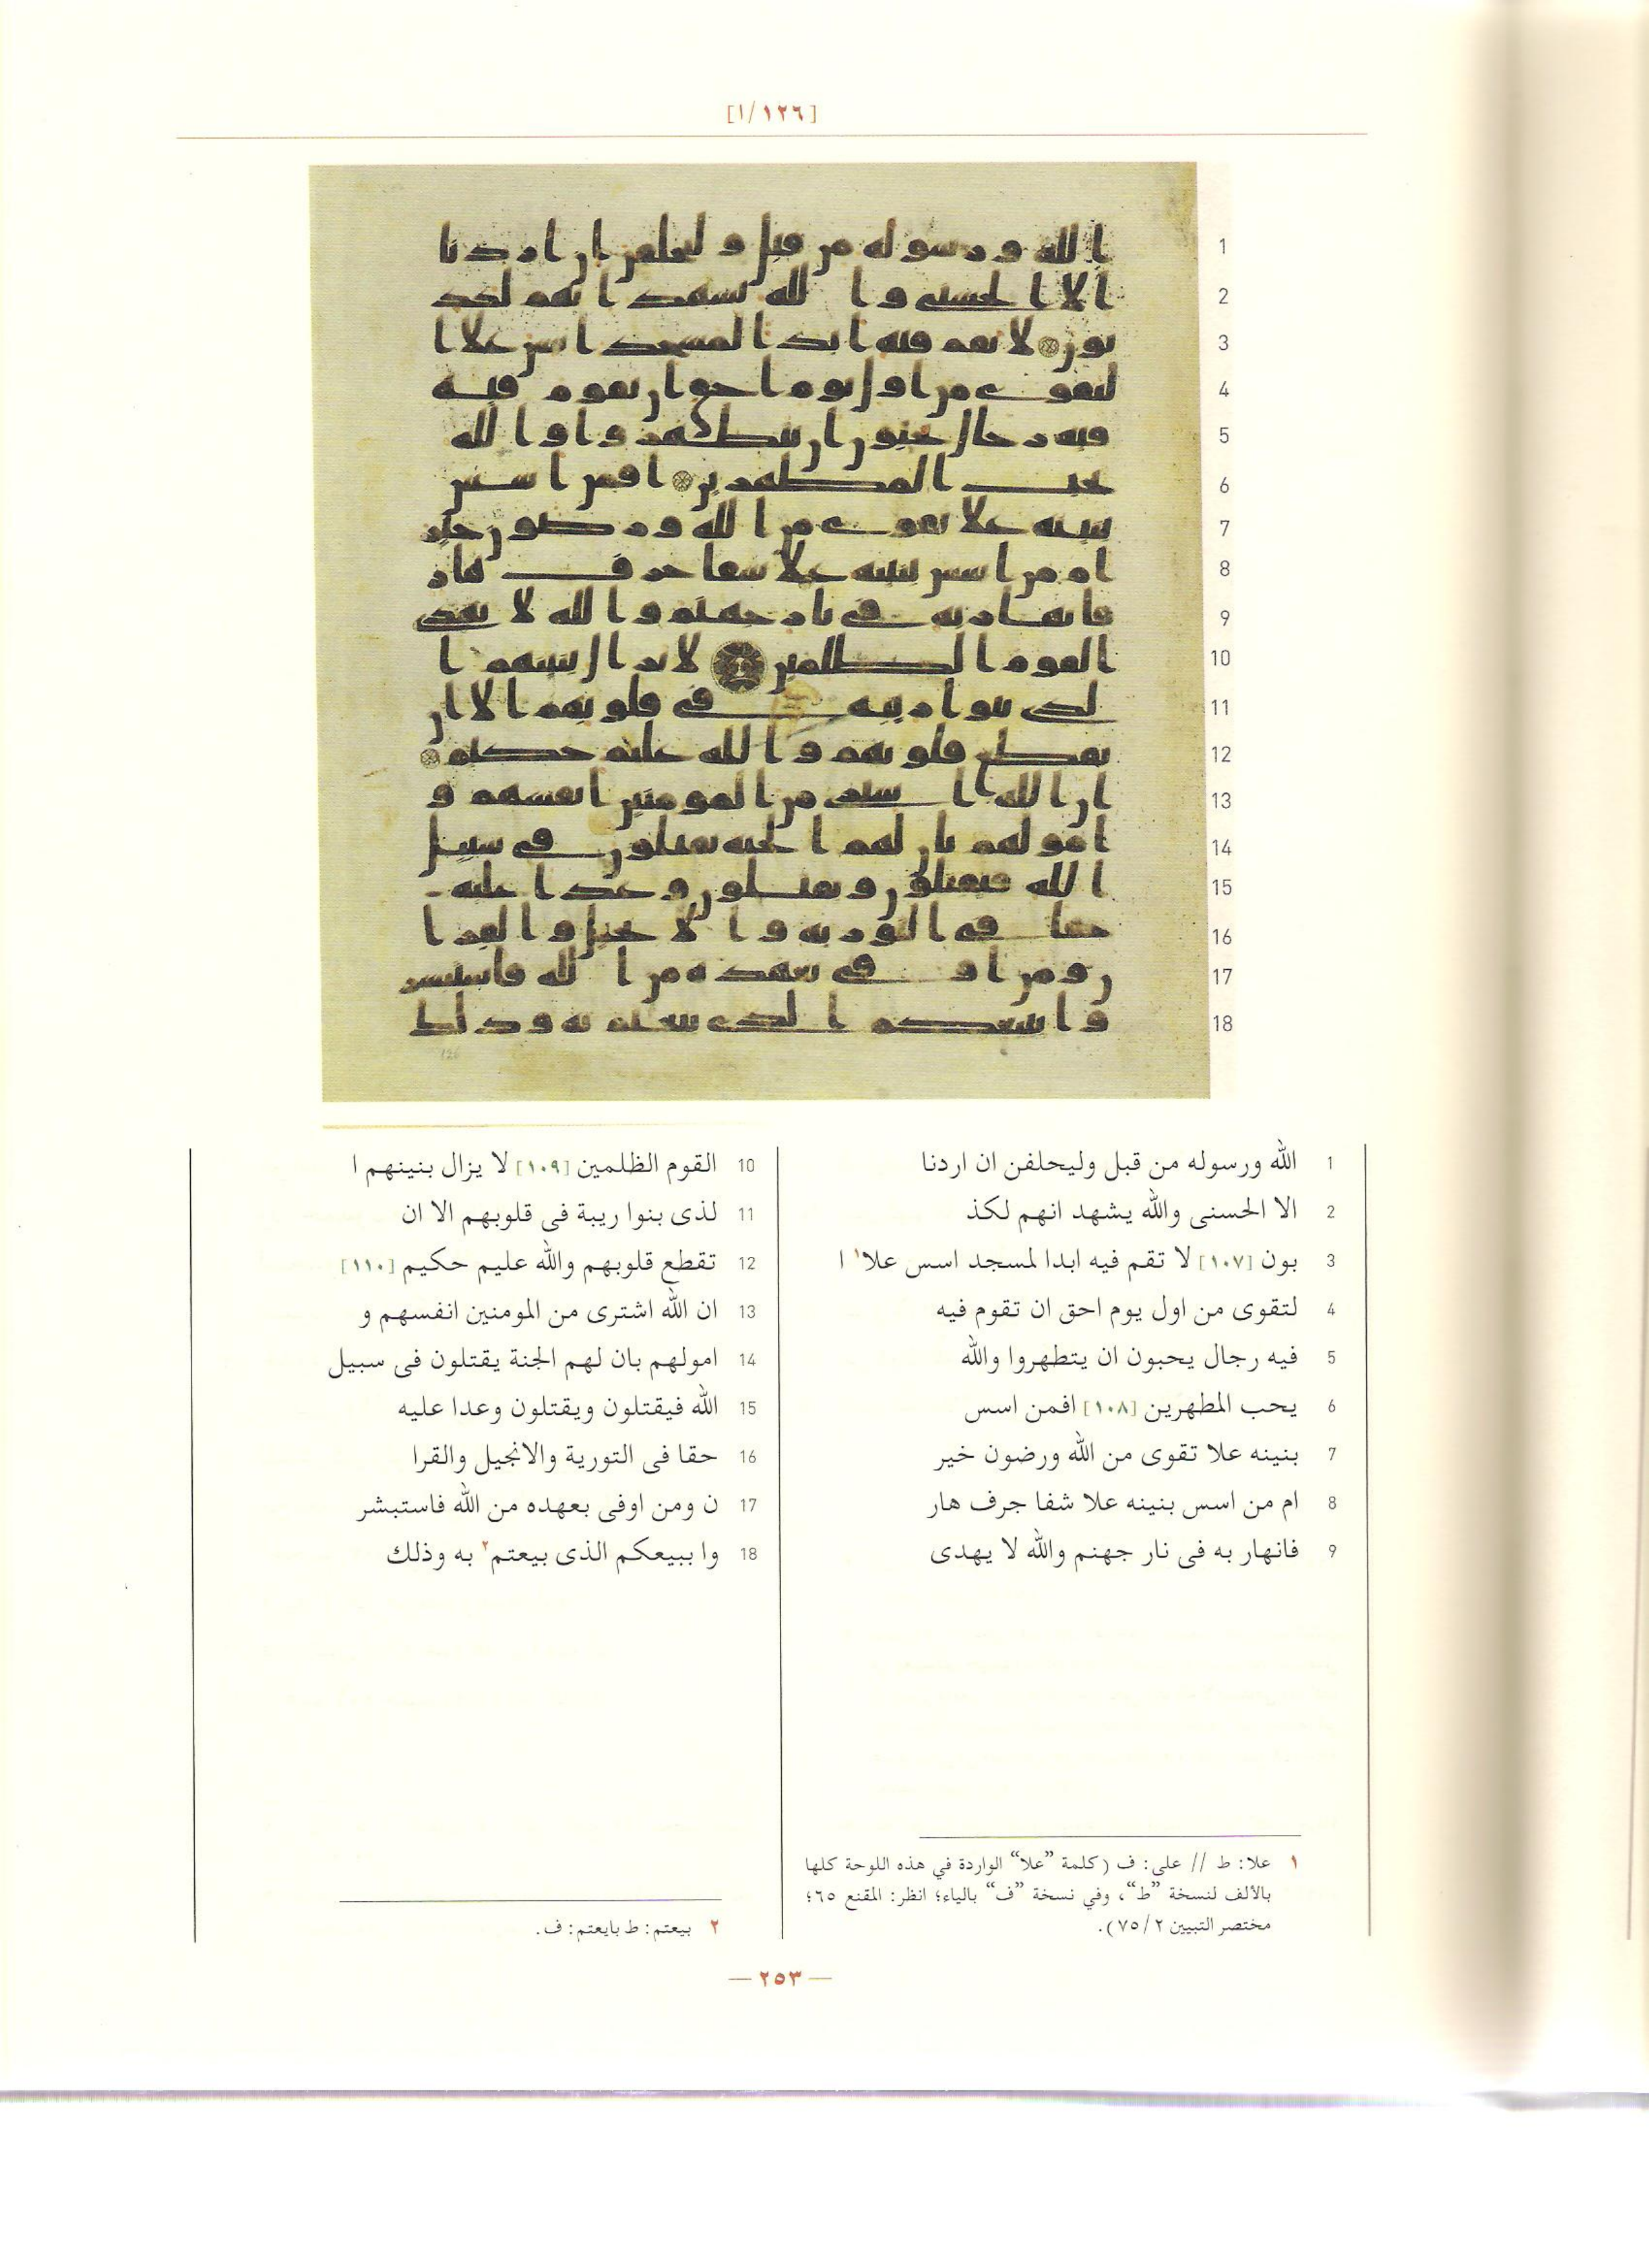 [١/١٢٦]
الله ورسوله من قبل وليحلفن ان اردنا 1
الا الحسنى والله يشهد انهم لكذ 2
بون [١٠٧] لا تقم فيه ابدا لمسجد اسس علا١ ا 3
لتقوى من اول يوم احق ان تقوم فيه 4
فيه رجال يحبون ان يتطهروا والله 5
يحب المطهرين [١٠٨] افمن اسس 6
بنينه علا تقوى من الله ورضون خير 7
ام من اسس بنينه علا شفا جرف هار 8
فانهار به فى نار جهنم والله لا يهدى 9
القوم الظلمين [١٠٩] لا يزال بنينهم ا 10
لذى بنوا ريبة فى قلوبهم الا ان 11
تقطع قلوبهم والله عليم حكيم [١١٠] 12
ان الله اشترى من المومنين انفسهم و 13
امولهم بان لهم الجنة يقتلون فى سبيل 14
الله فيقتلون ويقتلون وعدا عليه 15
حقا فى التورية والانجيل والقرا 16
ن ومن اوفى بعهده من الله فاستبشر 17
وا ببيعكم الذى بيعتم٢ به وذلك 18
١ علا: ط // على: ف (كلمة ”علا“ الواردة في هذه اللوحة كلها
بالألف لنسخة ”ط“، وفي نسخة ”ف“ بالياء؛ انظر: المقنع ٦٥؛
مختصر التبيين ٧٥/٢).
٢ بيعتم: ط بايعتم: ف.
— ٢٥٣ —